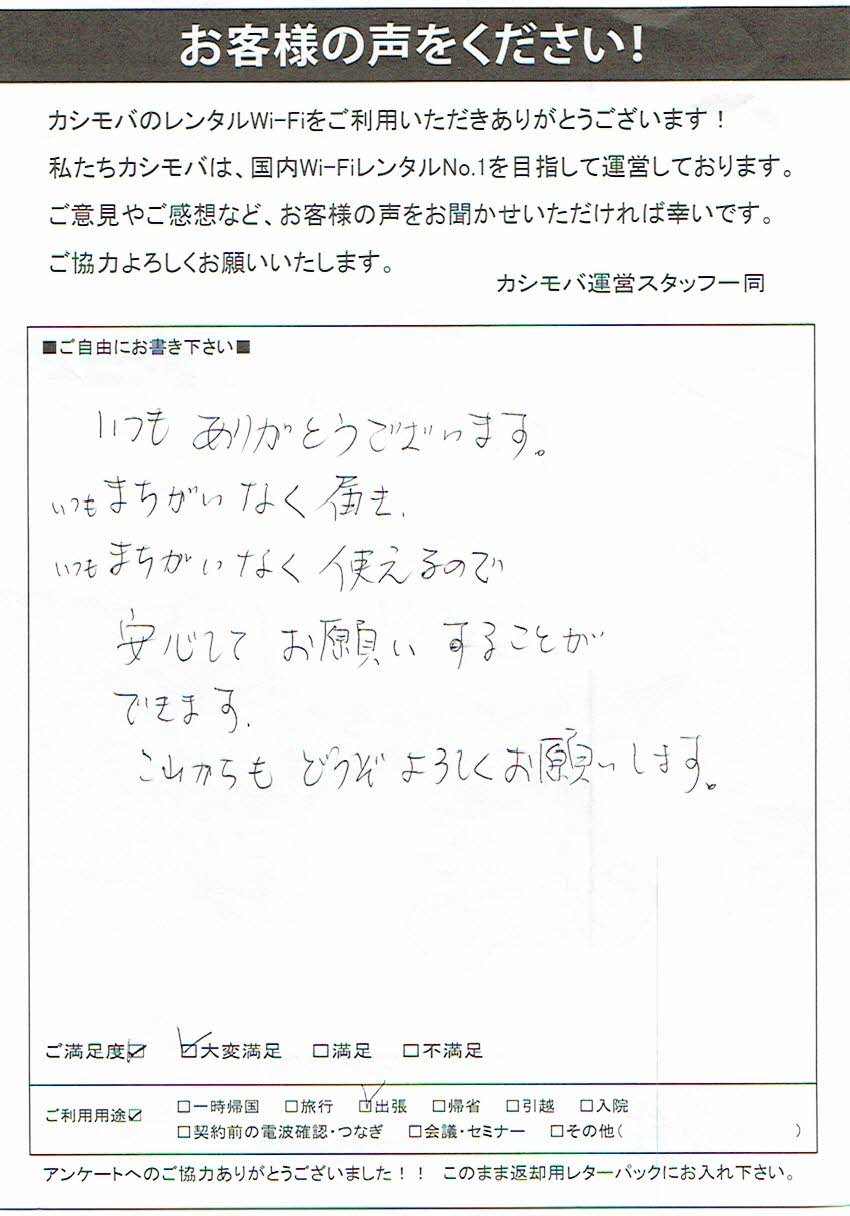 お客様の声をください!
カシモバのレンタルWi-Fiをご利用いただきありがとうございます!
私たちカシモバは、国内Wi-FiレンタルNo.1を目指して運営しております。
ご意見やご感想など、お客様の声をお聞かせいただければ幸いです。
ご協力よろしくお願いいたします。
カシモバ運営スタッフ一同
■ご自由にお書き下さい■
いつも ありがとうございます。
いつもまちがいなく届き、
いつもまちがいなく使えるので
安心して お願いすることが
できます。
これからも どうぞよろしくお願いします。
ご満足度☑ ☑大変満足 □満足 □不満足
ご利用用途☑ □一時帰国 □旅行 ☑出張 □帰省 □引越 □入院
□契約前の電波確認・つなぎ □会議・セミナー □その他( )
アンケートへのご協力ありがとうございました!! このまま返却用レターパックにお入れ下さい。